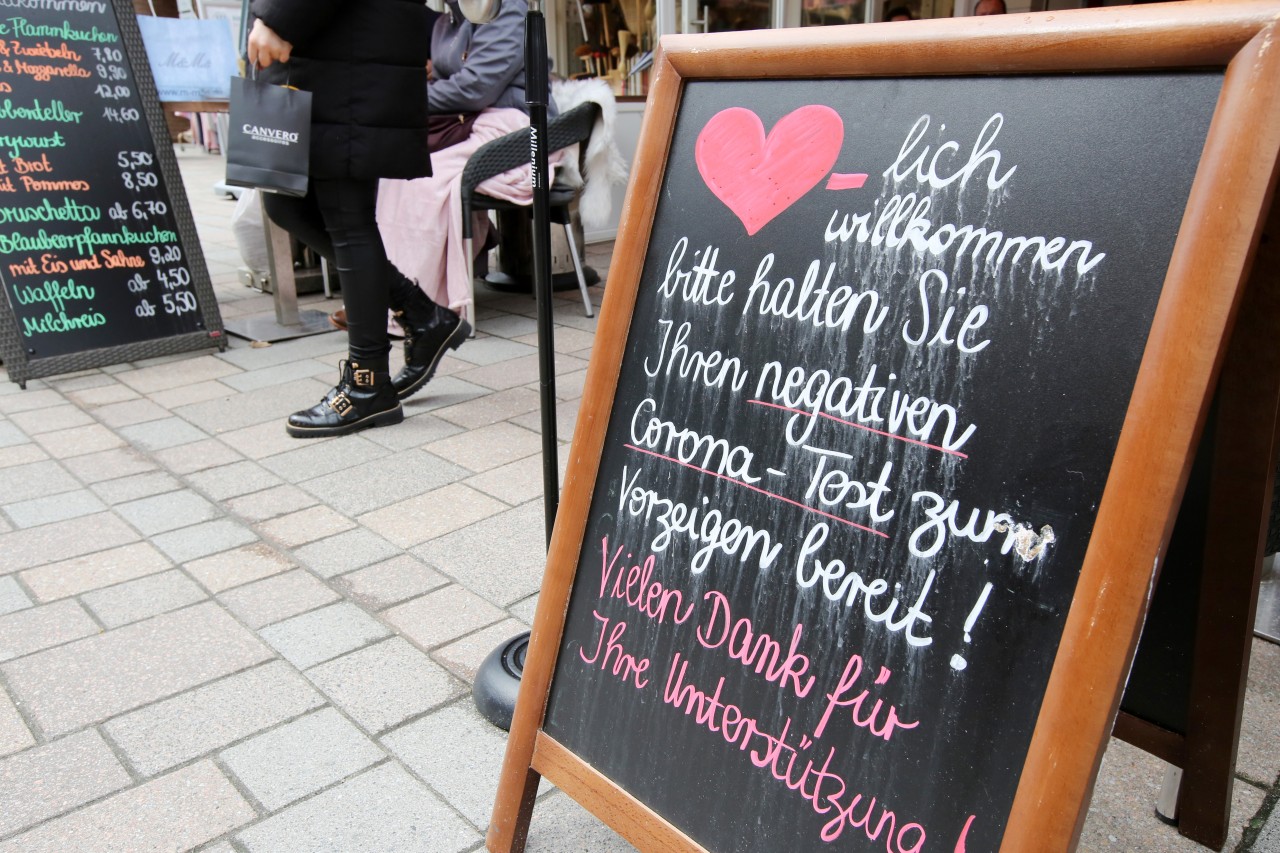 lkommen
e Flammkuchen
& Zwiebeln 7,80
& Mozzarella 9,90
12,00
14,60
rywurst
t Brot 5,50
it Pommes 8,50
ruschetta ab 6,70
Blaubeerpfannkuchen
mit Eis und Sahne 9,20
Waffeln ab 4,50
Milchreis ab 5,50
CANVERO
Millenium
- lich
willkommen
bitte halten Sie
Ihren negativen
Corona - Test zum
Vorzeigen bereit !
Vielen Dank für
Ihre Unterstützung !